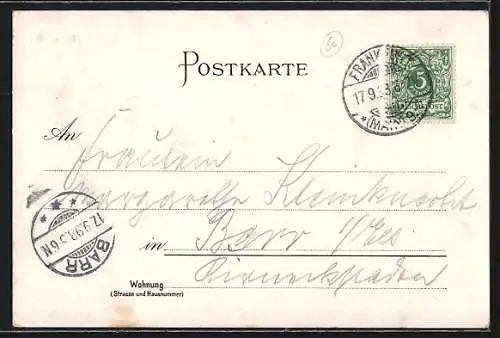 POSTKARTE
FRANKFURT
17.9.98
(MAIN) 9
5
An
Fräulein
Margarethe Kleinknecht
in Barr i/Els
BARR
17.9.98.5-6N
Wohnung
(Strasse und Hausnummer)